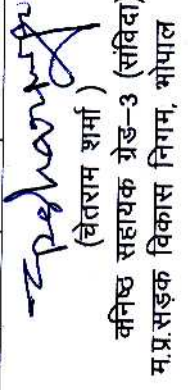 (चेतराम शर्मा)
कनिष्ठ सहायक ग्रेड-3 (संविदा)
म.प्र.सड़क विकास निगम, भोपाल